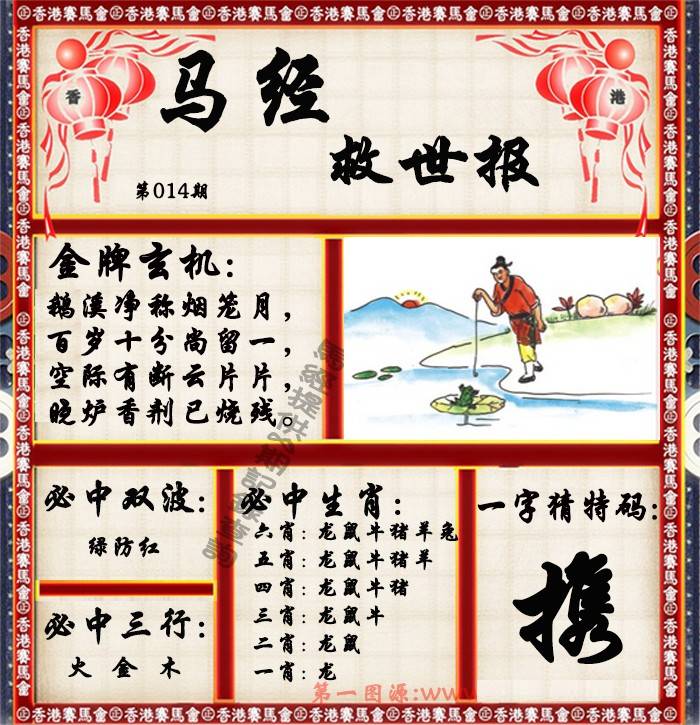 香港賽馬會
香 港
马经
救世报
第014期
金牌玄机:
鹅溪净称烟笼月,
百岁十分尚留一,
空际有断云片片,
晚炉香剂已烧残。
必中双波:
绿防红
必中三行:
火金木
必中生肖:
六肖:龙鼠牛猪羊兔
五肖:龙鼠牛猪羊
四肖:龙鼠牛猪
三肖:龙鼠牛
二肖:龙鼠
一肖:龙
一字猜特码:
携
第一图源:www